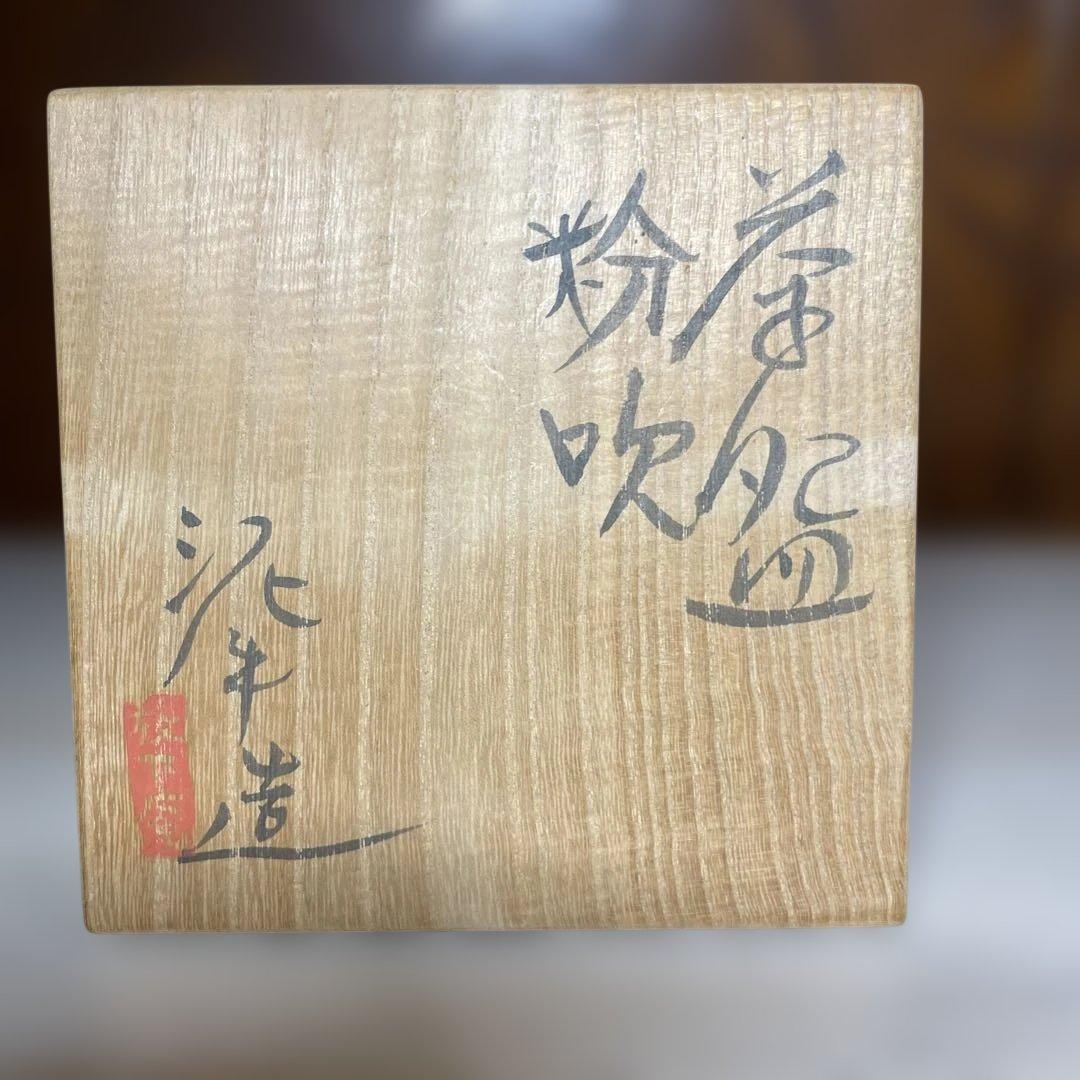 茶盌
粉吹
泥牛造